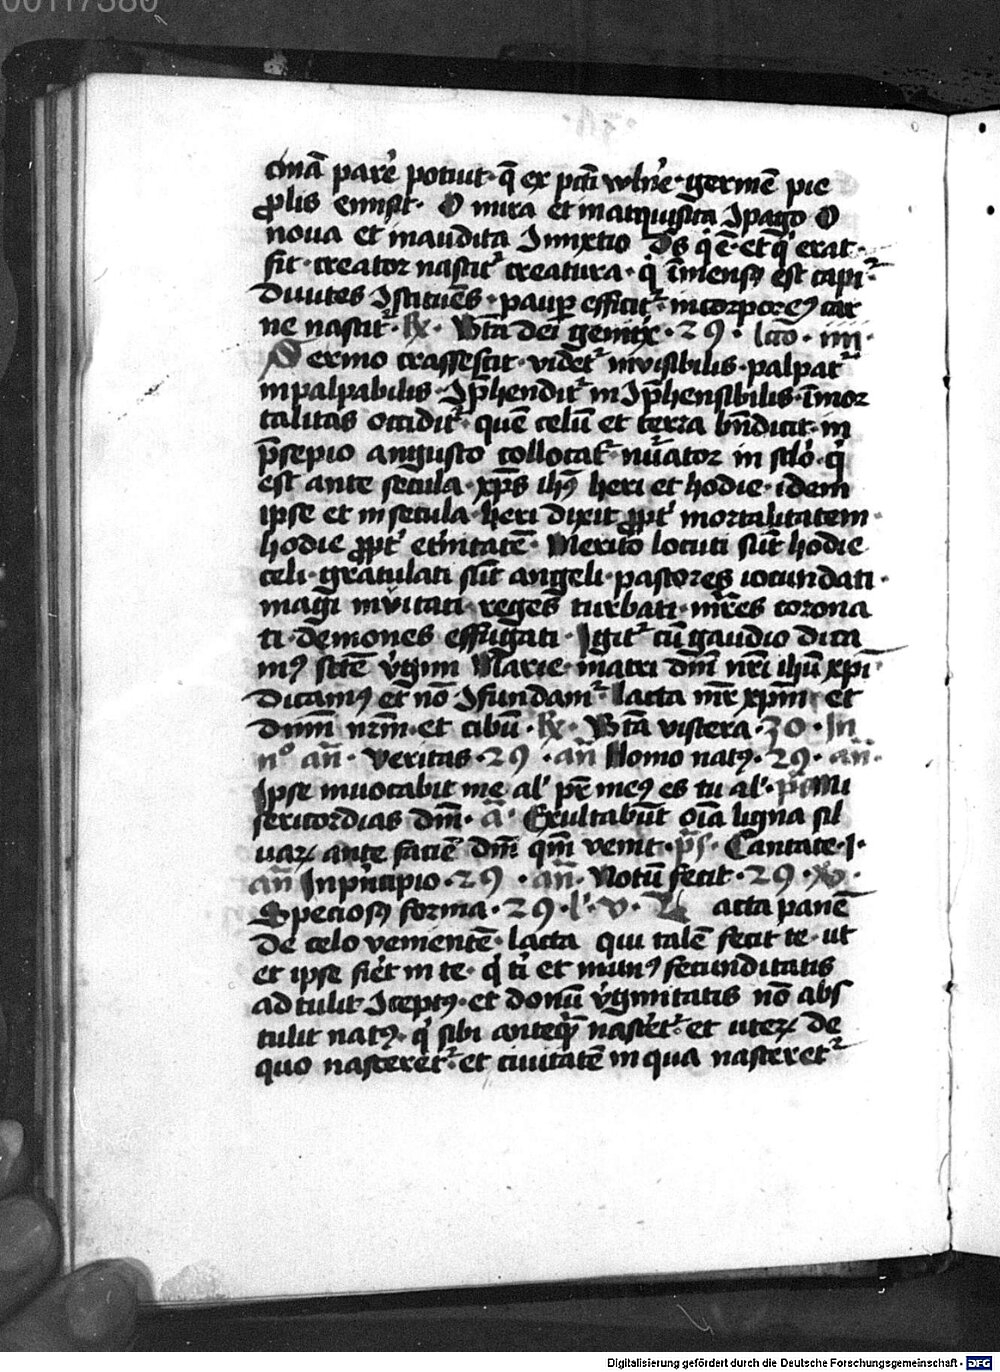 00117380
cinā parē potuit · q̄ ex pcti vulnē · germē pie
ꝓlis emisit · O mira et inatquisita Ipago O
noua et inaudita Inixtio Ds qͥ ē · et qͥ erat ·
fit · creator nascit᷑ creatura · qͥ īmensꝰ est capi᷑
Diuites Istituēs · paup efficit᷑ · incorporeꝰ car
ne nascit᷑ · ℞ · Bt̄a dei genitͥx · 29 · lcō · iiii ·
Sermo crassescit · videt᷑ invisibilis · palpat᷑
inpalpabilis · Ip̄hendit᷑ inIp̄hensibilis · īmor
talitas occidit᷑ · quē celū et terra bn̄dicit · in
p̄sepio angusto collocat᷑ · nūator in sclō · qͥ
est ante secula · xp̄s ihꝰ heri et hodie · idem
ipse et in secula · heri dixit ꝓpt᷑ mortalitatem ·
hodie ꝓpt᷑ et̄nitatē · Merito locuti sūt hodie
celi · gratulati sūt angeli · pastores iocundati ·
magi invitati · reges turbati · mr̄es corona
ti · demones effugati · Igit᷑ cū gaudio dica
mꝰ scte v̓gini Marie · matri dn̄i nr̄i ihū xp̄i
Dicamꝰ et nō Ifundam᷑ · lacta mr̄ xpm̄ et
dnm̄ nr̄m · et cibū · ℞ · Bt̄a viscera · 30 · In
nº · an̄ · Veritas · 29 · an̄ Homo natꝰ · 29 · an̄ ·
Ipse inuocabit me al̓ pr̄ meꝰ es tu al̓ · p̄s Mi
sericordias dn̄i · ā · Exultabūt oīa ligna sil
uaꝝ ante faciē dn̄i qm̄ venit · p̄s · Cantate · I ·
an̄ In pͥncipio · 29 · an̄ · Notū fecit · 29 · V̄ ·
Speciosꝰ forma · 29 · l̓ · v · L acta panē
De celo venientē · lacta qui talē fecit te · ut
et ipse fiēt in te · qͥ ti et munꝰ fecunditatis
ad tulit Iceptꝰ · et donū v̓ginitatis nō abs
tulit natꝰ · qͥ sibi anteqͣ̄ nascēt᷑ · et uteꝝ de
quo nasceret᷑ · et ciuitatē in qua nasceret᷑
Digitalisierung gefördert durch die Deutsche Forschungsgemeinschaft - DFG